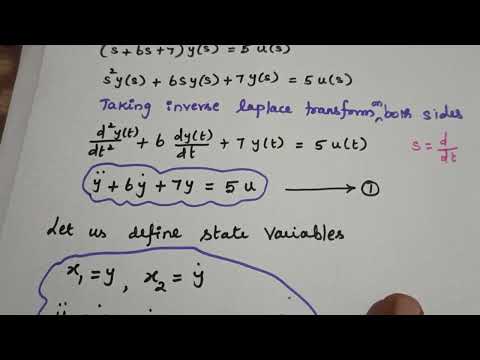 (s+6s+7) y(s) = 5 u(s)
s² y(s) + 6s y(s) + 7 y(s) = 5 u(s)
Taking inverse laplace transform on both sides
d²y(t)/dt² + 6 dy(t)/dt + 7 y(t) = 5 u(t)
s = d/dt
ÿ + 6ẏ + 7y = 5 u → ①
Let us define state variables
x₁ = y , x₂ = ẏ